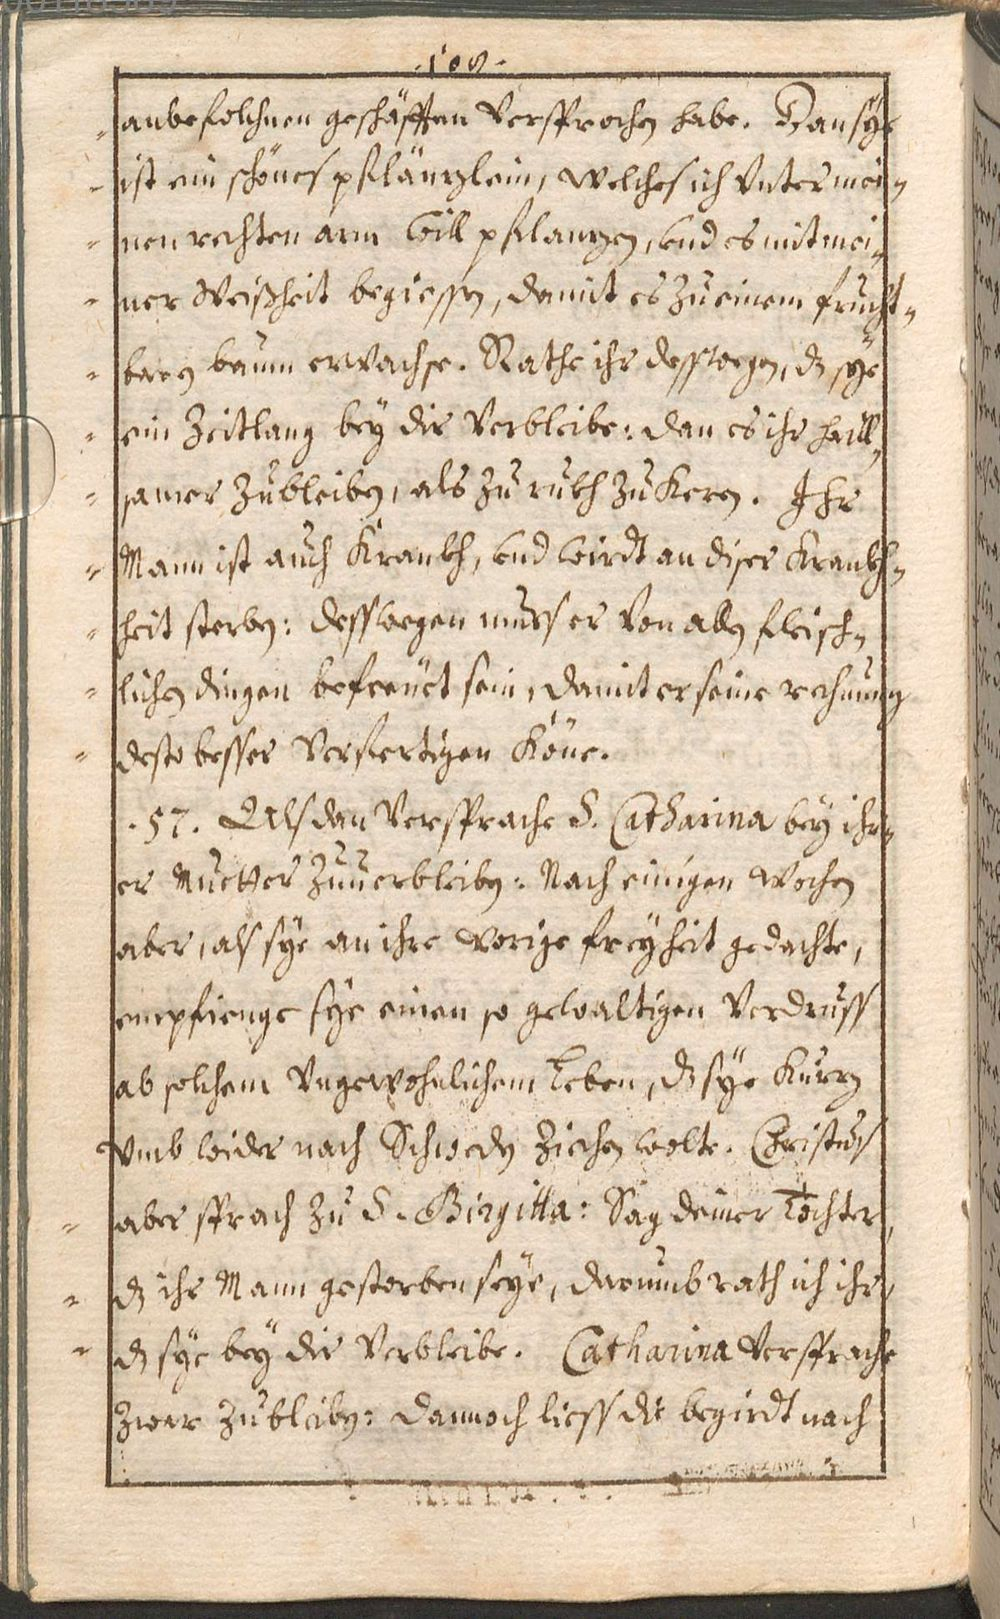 ·108·
anbefolchnen geschäfften versprochen habe. Dan sÿe
ist ein schönes pflänzlein, welches ich vnter mei„
nen rechten arm will pflanzen, vnd es mit mei„
ner Weißheit begiessen, damit es zu einem frucht„
baren baum erwachse. Rathe ihr desswegen, dz sÿe
ein Zeitlang beÿ dir verbleibe: dan es ihr haill„
samer zu bleiben, als zu rukh zu Keren. Ihr
Mann ist auch Krankh, vnd wirdt an diser Krankh„
heit sterben: desswegen muess er von allen fleisch„
lichen dingen befreüet sein, damit er seine rechnung
desto besser verfertigen Köne.
·57. Alsdan versprache S. Catharina beÿ ihr„
er Muetter zuuerbleiben: Nach einigen wochen
aber, als sÿe an ihre vorige freÿheit gedachte,
empfienge sÿe einen so gewaltigen verdruss
ab solchem vngewohnlichem Leben, dz sÿe Kurz
vmb wider nach Schweden ziehen wolte. Christus
aber sprach zu S. Birgitta: Sag deiner Tochter,
dz ihr Mann gestorben seÿe, darumb rath ich ihr,
dz sÿe beÿ dir verbleibe. Catharina versprache
zwar zu bleiben: dannoch liess die begirdt nach